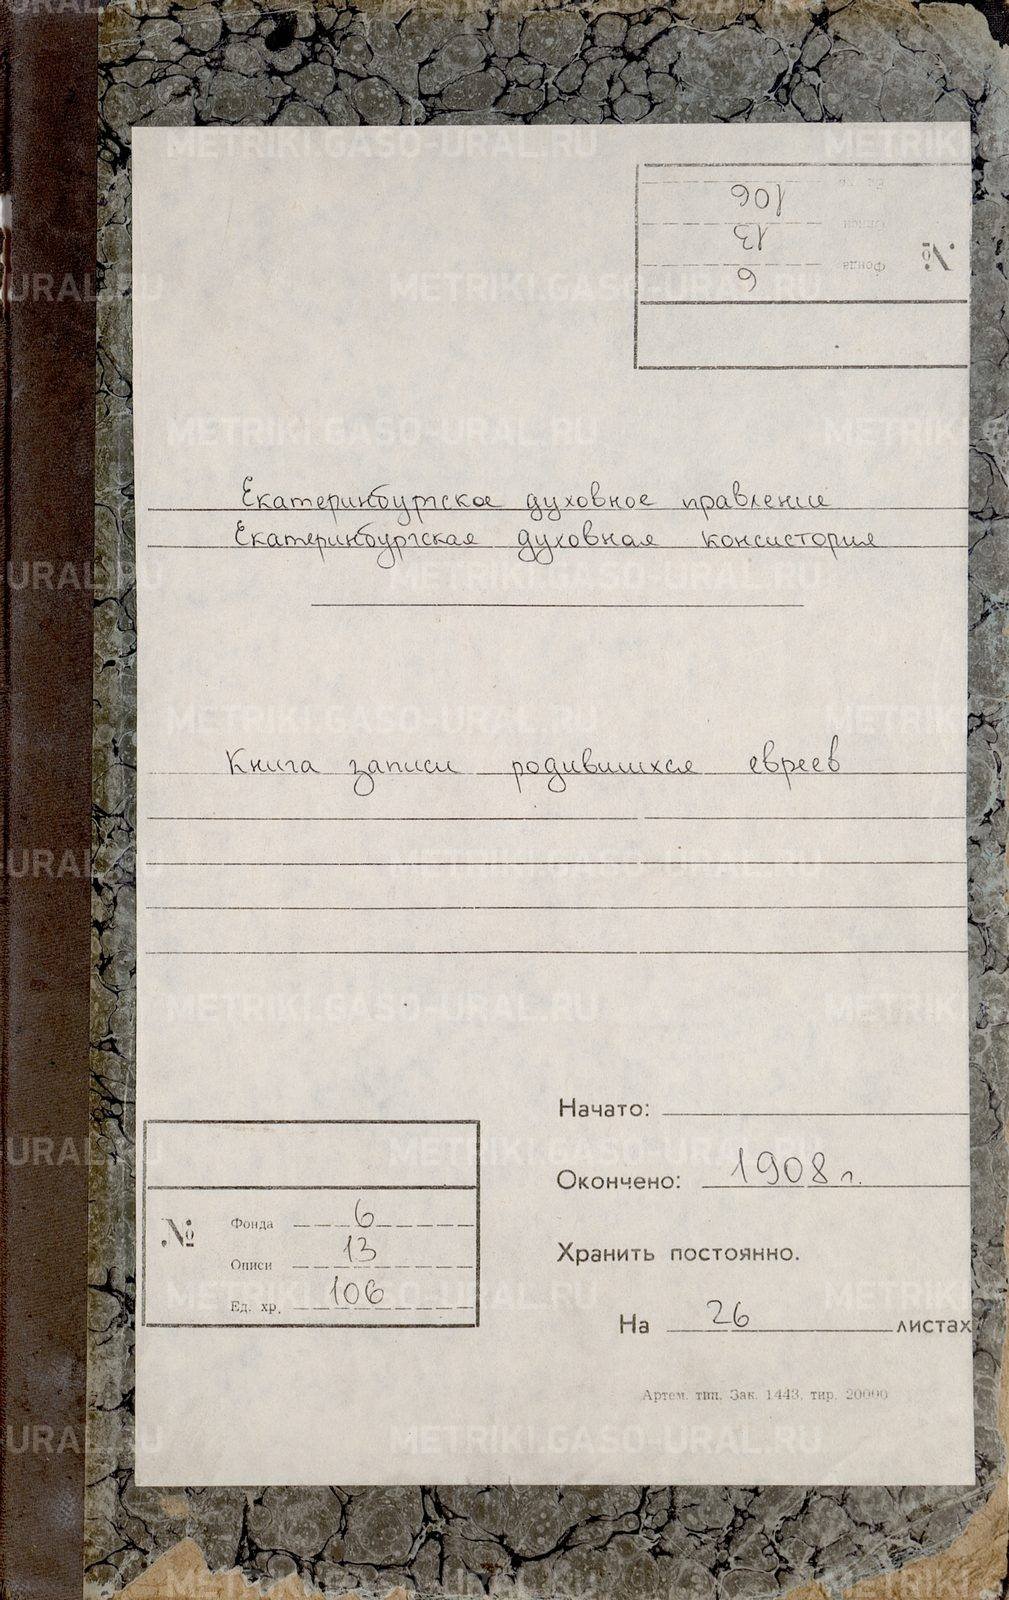 №
Фонда 6
Описи 13
Ед. хр. 106
Екатеринбургское духовное правление
Екатеринбургская духовная консистория
Книга записи родившихся евреев
Начато:
Окончено: 1908 г.
Хранить постоянно.
На 26 листах
№
Фонда 6
Описи 13
Ед. хр. 106
Артем. тип. Зак. 1443, тир. 20000
METRIKI.GASO-URAL.RU